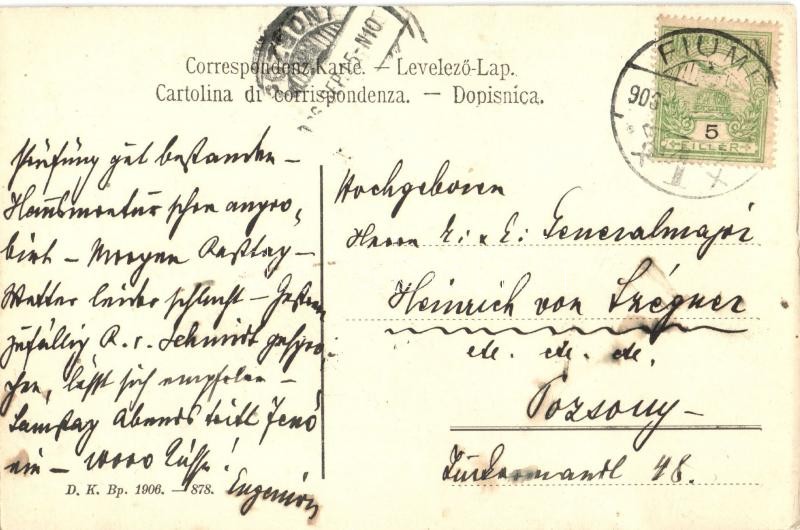 Correspondenz-Karte. — Levelező-Lap.
Cartolina di corrispondenza. — Dopisnica.
POZSONY
FIUME
906
5
FILLÉR
Prüfung gut bestanden –
Hausmontur schon angepro-
birt – Morgen Rasttag –
Wetter leider schlecht – Gestern
zufällig R. v. Schmidt gespro-
chen, lässt sich empfelen –
Samstag Abends tritt Jenö
ein – 10000 Küsse!
Hochgeboren
Herrn K: u K: Generalmajor
Heinrich von
etc. etc. etc.
Pozsony –
Zuckermandl 48.
D. K. Bp. 1906. — 878.